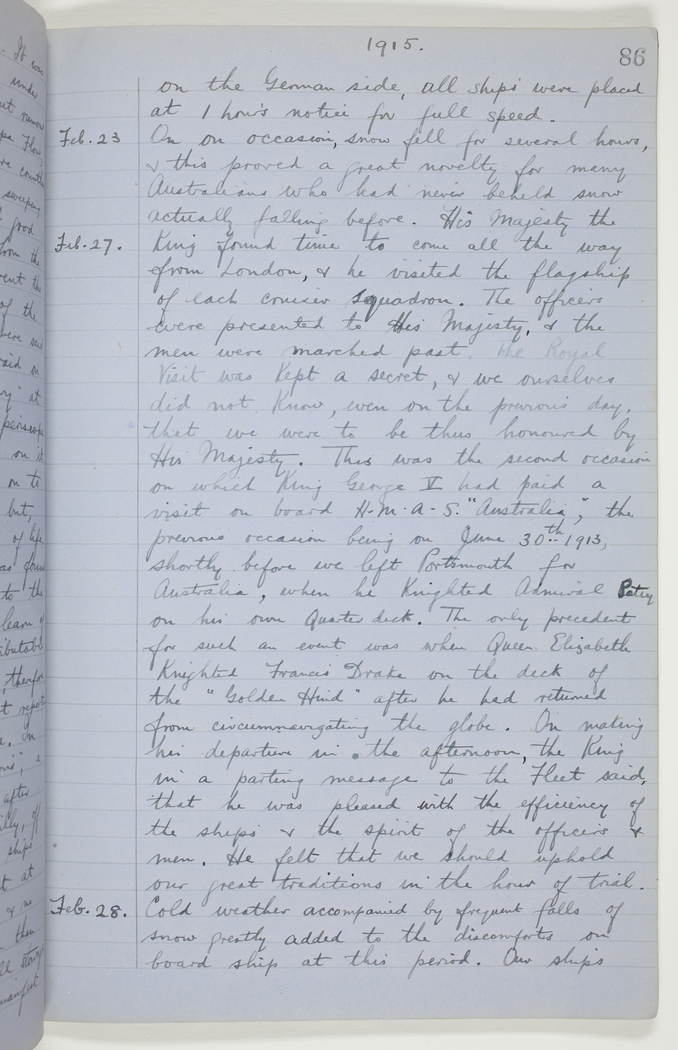 1915.
86
on the German side, all ships were placed
at 1 hour's notice for full speed.
Feb. 23 On on occasion, snow fell for several hours,
& this proved a great novelty for many
Australians who had never beheld snow
actually falling before. His Majesty the
Feb. 27. King found time to come all the way
from London, & he visited the flagship
of each cruiser squadron. The officers
were presented to His Majesty, & the
men were marched past. The Royal
Visit was kept a secret, & we ourselves
did not know, even on the previous day,
that we were to be thus honoured by
His Majesty. This was the second occasion
on which King George V had paid a
visit on board H.M.A.S. "Australia", the
previous occasion being on June 30th 1913,
shortly before we left Portsmouth for
Australia, when he Knighted Admiral Patey
on his own Quarter deck. The only precedent
for such an event was when Queen Elizabeth
Knighted Francis Drake on the deck of
the "Golden Hind" after he had returned
from circumnavigating the globe. On making
his departure in the afternoon, the King
in a parting message to the Fleet said,
that he was pleased with the efficiency of
the ships & the spirit of the officers &
men. He felt that we should uphold
our great traditions in the hour of trial.
Feb. 28. Cold weather accompanied by frequent falls of
snow greatly added to the discomforts on
board ship at this period. Our ships